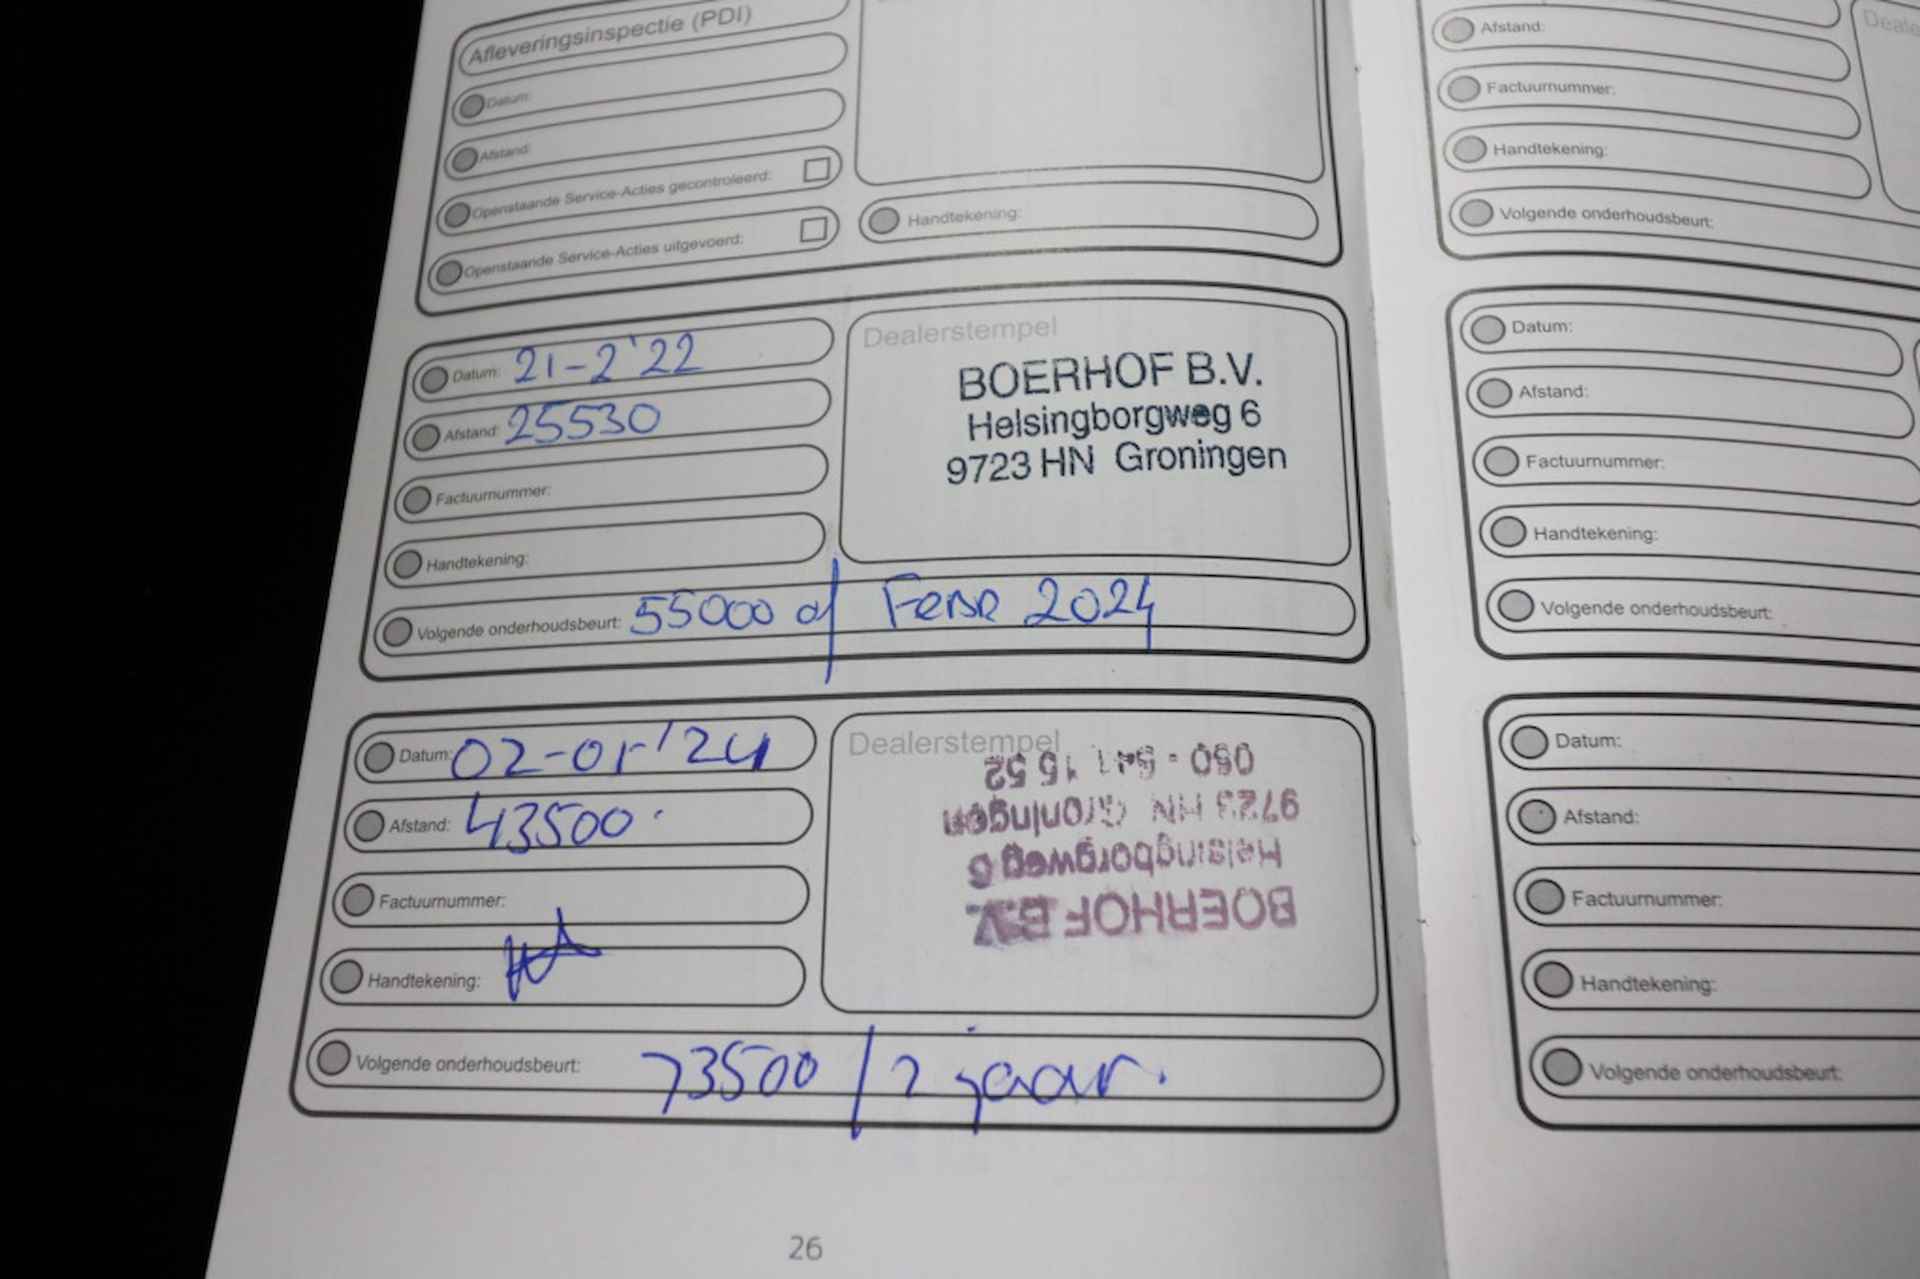 Afleveringsinspectie (PDI)
Datum:
Afstand:
Openstaande Service-Acties gecontroleerd:
Openstaande Service-Acties uitgevoerd:
Handtekening:
Datum: 21-2'22
Afstand: 25530
Factuurnummer:
Handtekening:
Volgende onderhoudsbeurt: 55000 of Febr 2024
Dealerstempel
BOERHOF B.V.
Helsingborgweg 6
9723 HN Groningen
Datum: 02-01-'24
Afstand: 43500
Factuurnummer:
Handtekening:
Volgende onderhoudsbeurt: 73500 / 2 jaar.
Dealerstempel
BOERHOF B.V.
Helsingborgweg 6
9723 HN Groningen
050 - 541 15 52
26
Afstand:
Factuurnummer:
Handtekening:
Volgende onderhoudsbeurt:
Datum:
Afstand:
Factuurnummer:
Handtekening:
Volgende onderhoudsbeurt:
Datum:
Afstand:
Factuurnummer:
Handtekening:
Volgende onderhoudsbeurt: